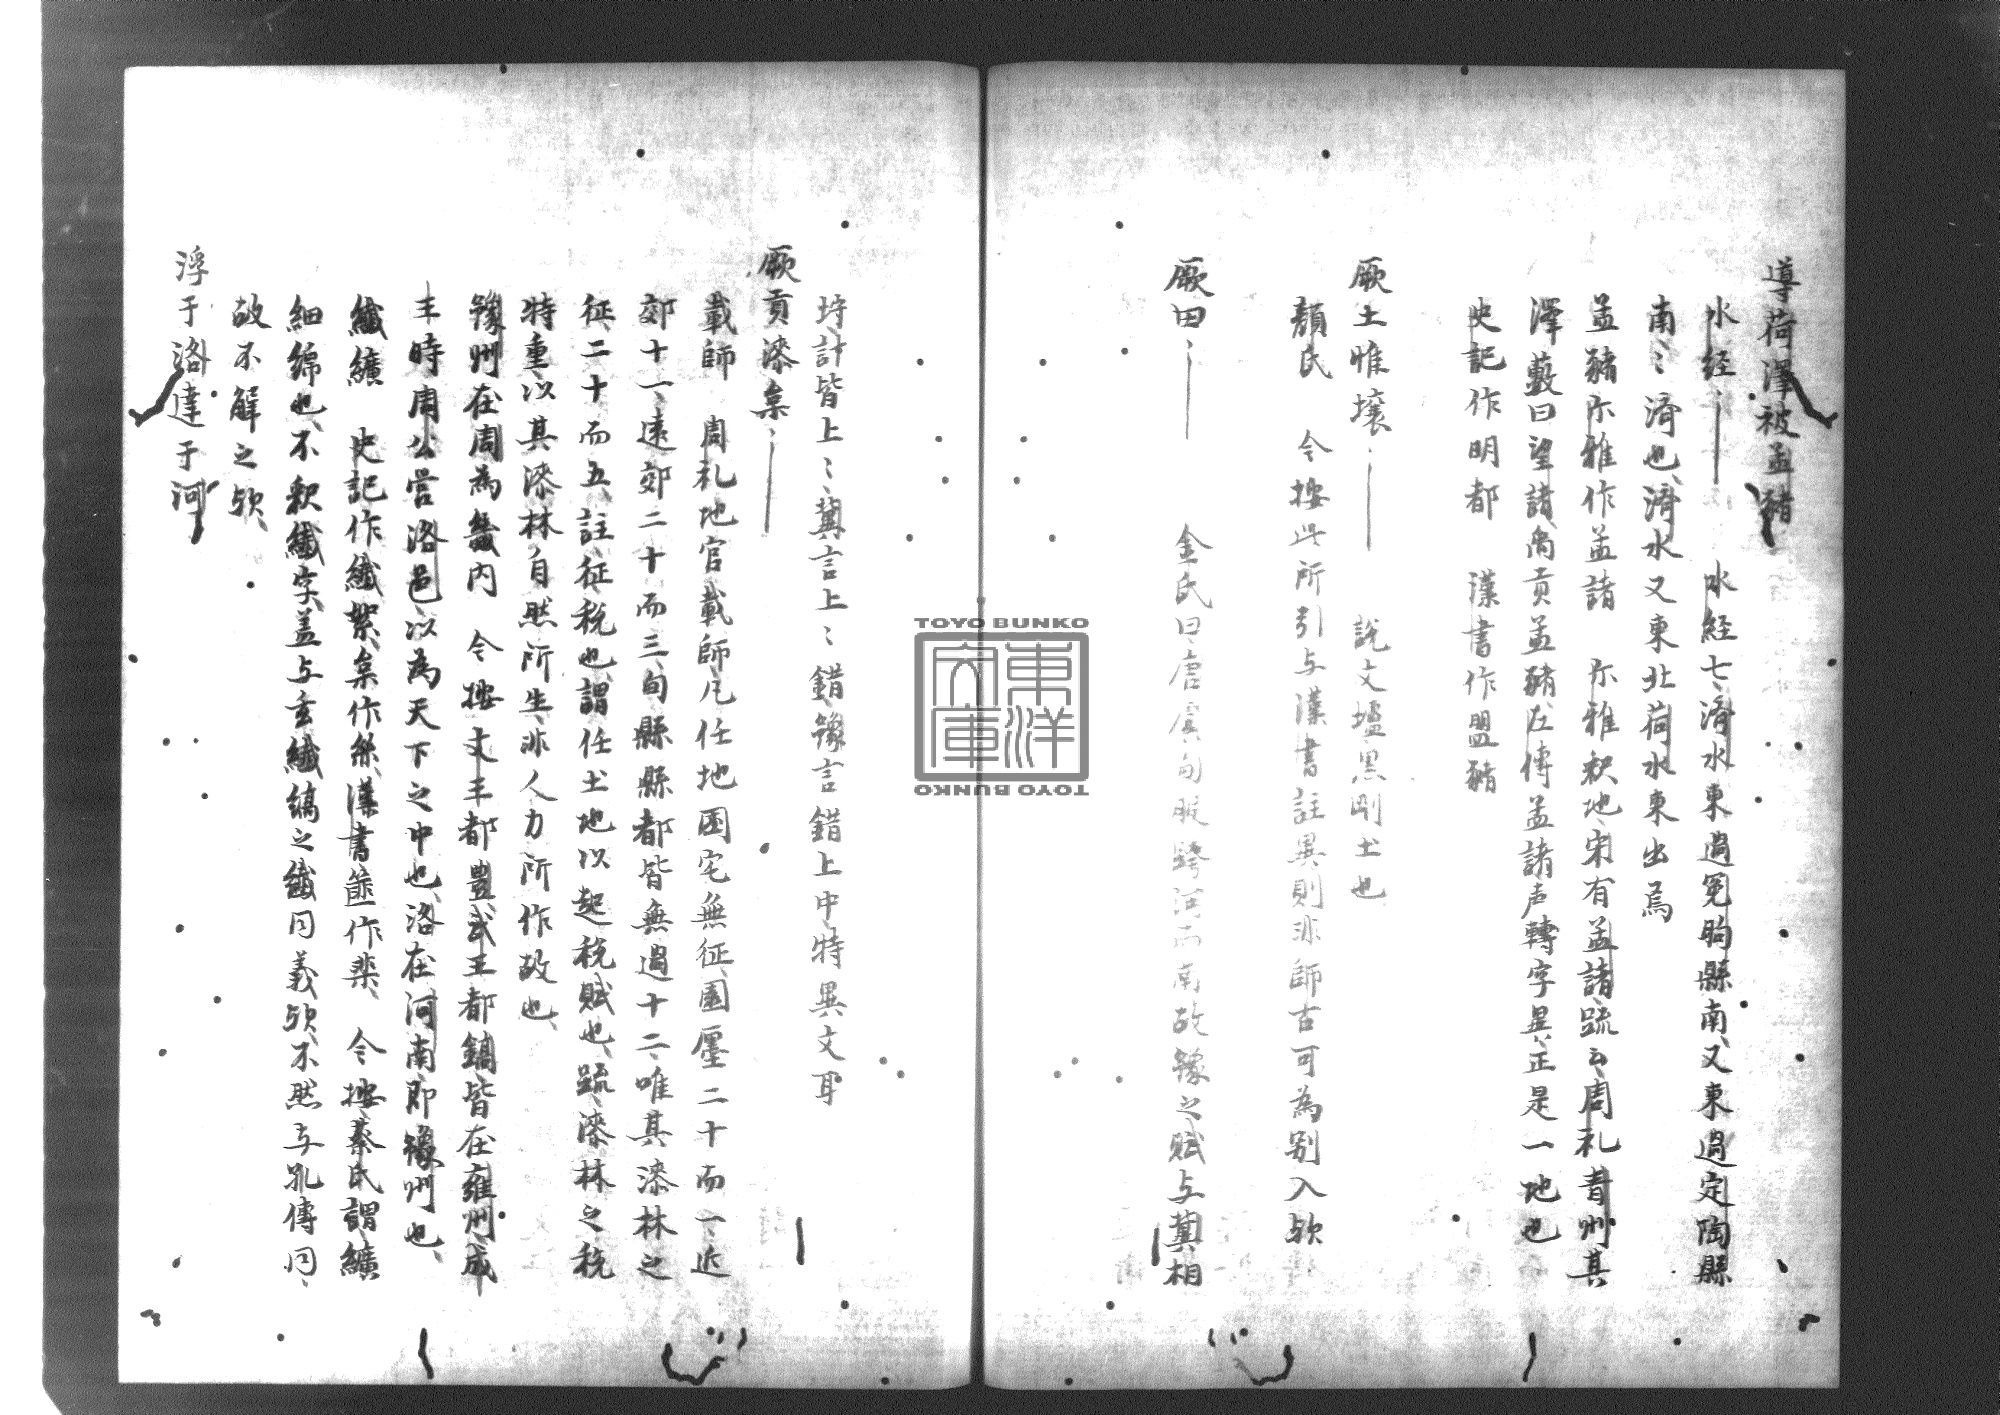 導荷澤被孟豬
水经〻― 水経七、済水東過冤朐縣南、又東過定陶縣
南〻済也、済水又東北荷水東出焉
孟豬 尓雅作孟諸 尓雅釈地、宋有孟諸、疏云、周礼青州其
澤藪曰望諸、禹貢孟豬、左傳孟諸、声轉字異、正是一地也
史記作明都 漢書作盟豬
厥土惟壌〻― 説文壚黒剛土也
顔氏 今按此所引与漢書註異、則非師古可為别入欤
厥田〻― 金氏曰、唐虞甸服跨河而南、故豫之賦与冀相
埒、計皆上〻、冀言上〻錯、豫言錯上中、特異文耳
厥貢漆枲〻―
載師 周礼地官載師、凡任地、国宅無征、園廛二十而一、近
郊十一、遠郊二十而三、甸縣縣都皆無過十二、唯其漆林之
征、二十而五、註、征税也、謂任土地以起税賦也、疏、漆林之税
特重、以其漆林自然所生、非人力所作故也、
豫州在周為畿内 今按文王都豊、武王都鎬、皆在雍州、成
王時周公営洛邑、以為天下之中也、洛在河南、即豫州也、
纖纊 史記作纖絮、枲作絲、漢書篚作棐、 今按蔡氏謂纊
細綿也、不釈纖字、盖与玄纖縞之纖同義欤、不然与孔傳同、
故不解之欤、
浮于洛達于河
TOYO BUNKO
東洋文庫
TOYO BUNKO